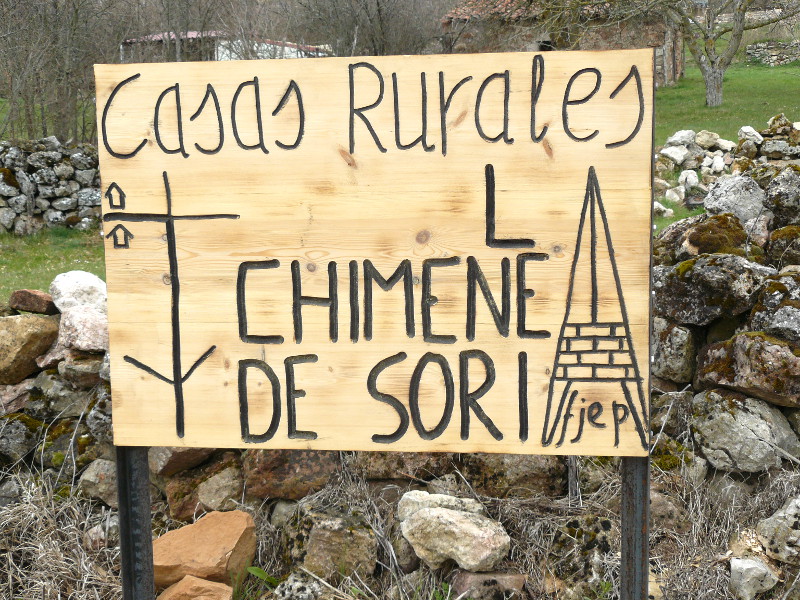 Casas Rurales
L
CHIMENE
DE SORI
fjep